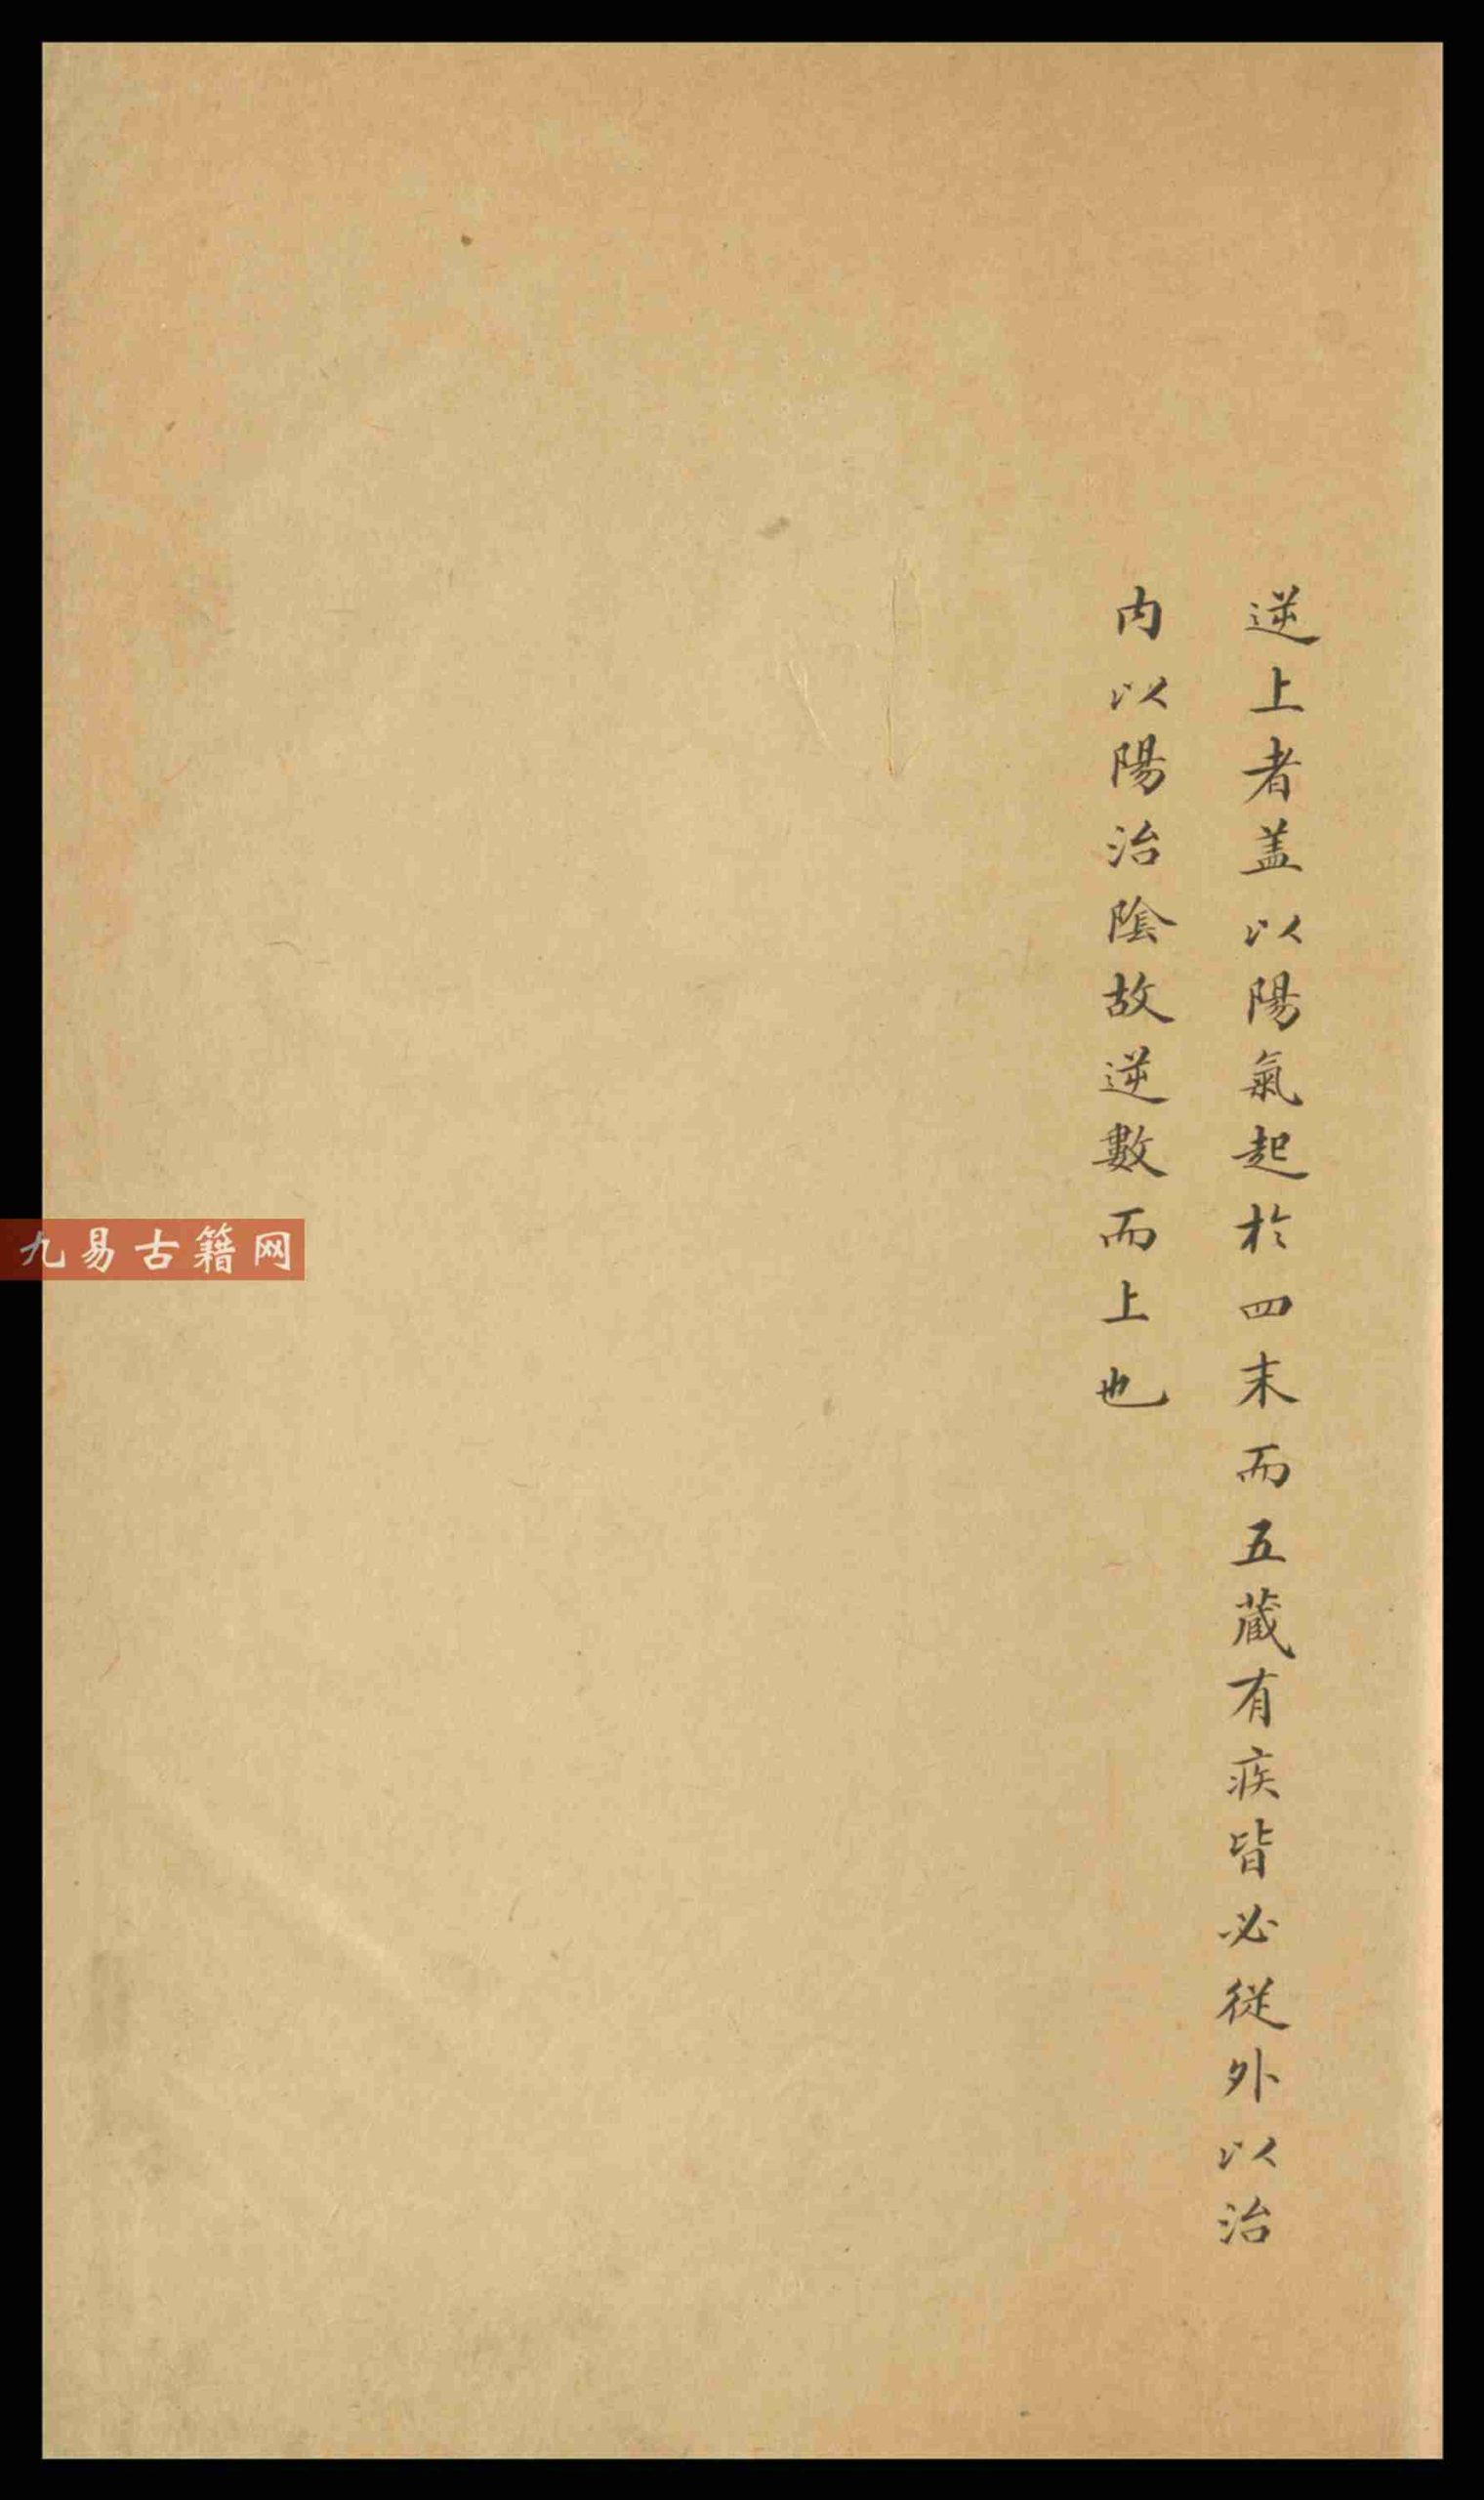 逆上者盖以陽氣起於四末而五蔵有疾皆必從外以治
内以陽治陰故逆數而上也
九易古籍网